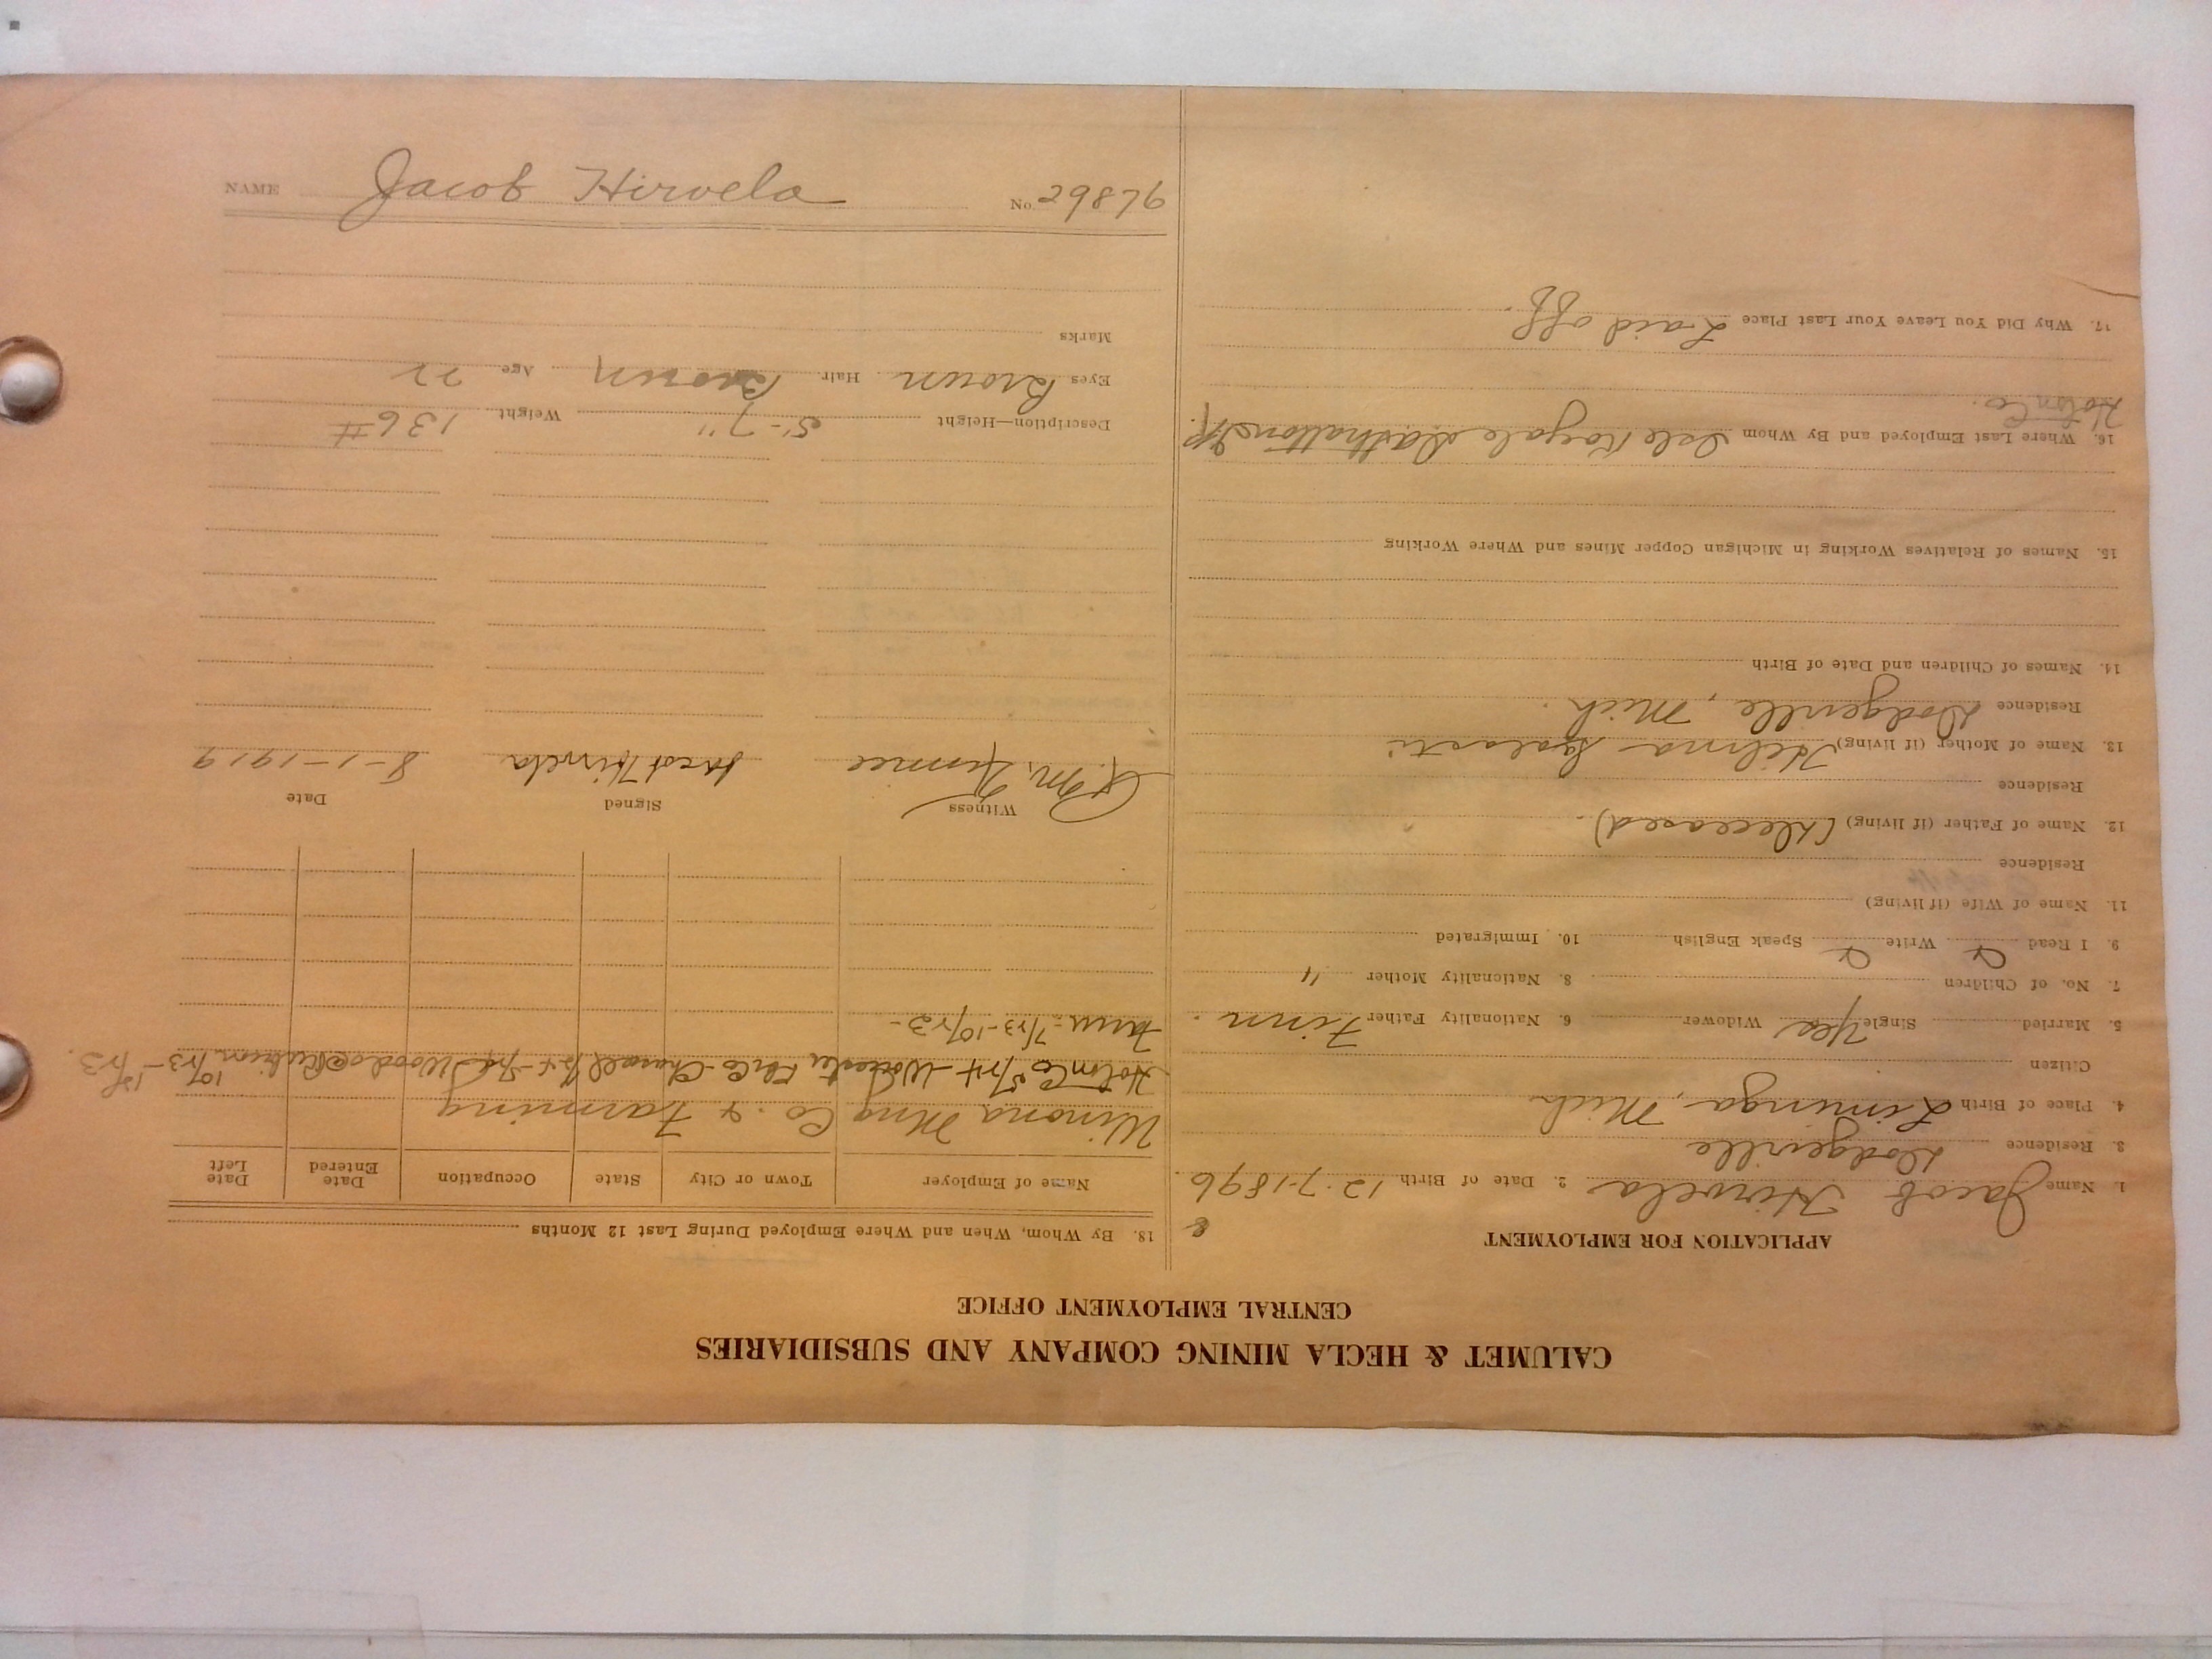 CALUMET & HECLA MINING COMPANY AND SUBSIDIARIES
CENTRAL EMPLOYMENT OFFICE
APPLICATION FOR EMPLOYMENT
8
1. Name Jacob Hirvela 2. Date of Birth 12-7-1896
3. Residence Dodgeville
4. Place of Birth Liminga, Mich
Citizen
5. Married Single Yes Widower 6. Nationality Father Finn.
7. No. of Children 8. Nationality Mother "
9. I Read Write Speak English 10. Immigrated
11. Name of Wife (if living)
Residence
12. Name of Father (if living) (Deceased).
Residence
13. Name of Mother (if living) Hilma
Residence Dodgeville, Mich.
14. Names of Children and Date of Birth
15. Names of Relatives Working in Michigan Copper Mines and Where Working
16. Where Last Employed and By Whom Isle Royale
Co.
17. Why Did You Leave Your Last Place Laid off.
18. By Whom, When and Where Employed During Last 12 Months
Name of Employer Town or City State Occupation Date Entered Date Left
Winona Mng Co. & Farming
Co Chassell Wood 10/23-
7/23-10/23-
Witness Signed Date
Jacob Hirvela 8-1-1919
Description—Height 5'-7" Weight 136#
Eyes Brown Hair Brown Age 22
Marks
NAME Jacob Hirvela No. 29876